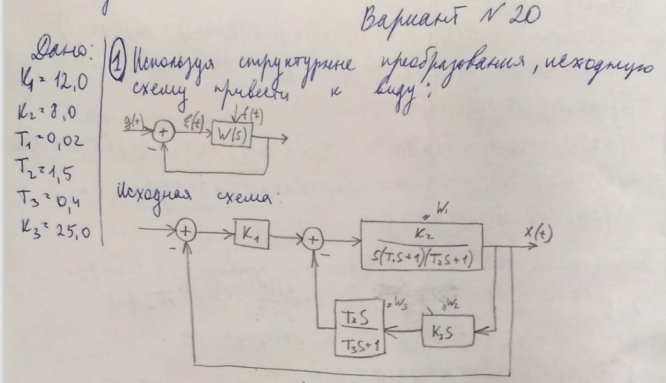 Вариант N 20
Дано:
K₁ = 12,0
K₂ = 8,0
T₁ = 0,02
T₂ = 1,5
T₃ = 0,4
K₃ = 25,0
① Используя структурные преобразования, исходную
схему привести к виду:
g(t)
+
-
ξ(t)
f(t)
W(s)
Исходная схема
+
-
K₁
+
-
W₁
K₂
S(T₁S+1)(T₂S+1)
X(t)
W₃
T₂S
T₃S+1
W₂
K₃S